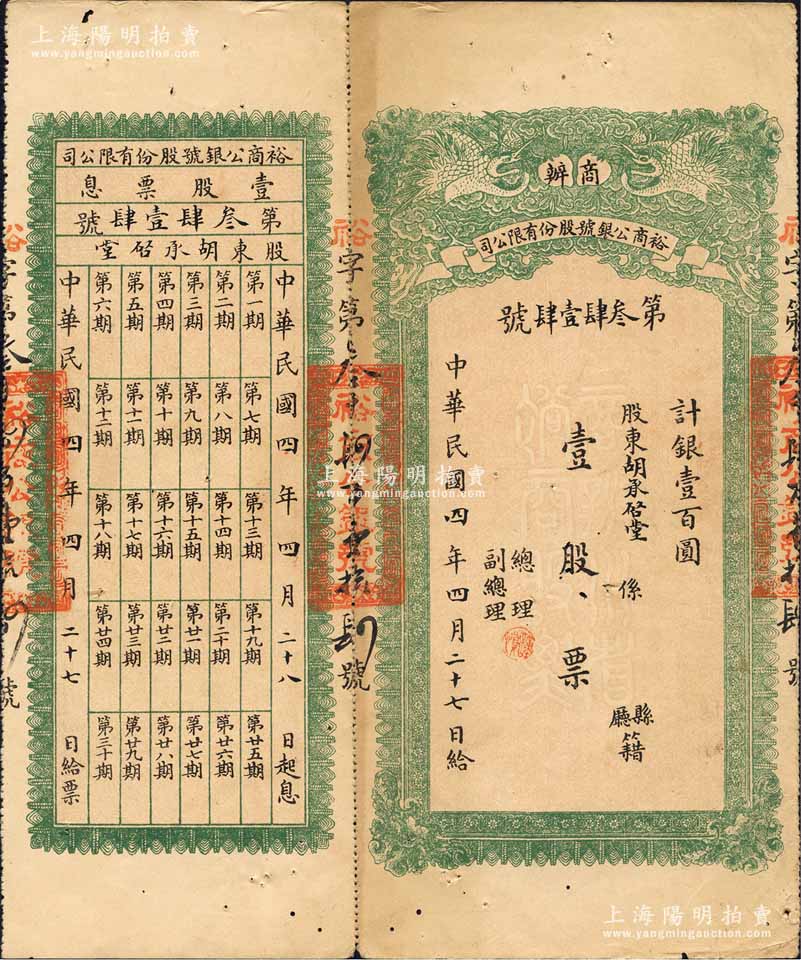 上海陽明拍賣
www.yangmingauction.com
上海陽明拍賣
www.yangmingauction.com
商辦
裕商公銀號股份有限公司
第叁肆壹肆號
計銀壹百圓
股東胡承啓堂 係 縣廳籍
壹股票
總理
副總理
中華民國四年四月二十七日給
字第
號
裕
裕商公銀號股份有限公司
壹股票息
第叁肆壹肆號
股東胡承啓堂
中華民國四年四月二十八日起息
第一期 第七期 第十三期 第十九期 第廿五期
第二期 第八期 第十四期 第二十期 第廿六期
第三期 第九期 第十五期 第廿一期 第廿七期
第四期 第十期 第十六期 第廿二期 第廿八期
第五期 第十一期 第十七期 第廿三期 第廿九期
第六期 第十二期 第十八期 第廿四期 第三十期
中華民國四年四月二十七日給票
上海陽明拍賣
www.yangmingauction.com
上海陽明拍賣
www.yangmingauction.com